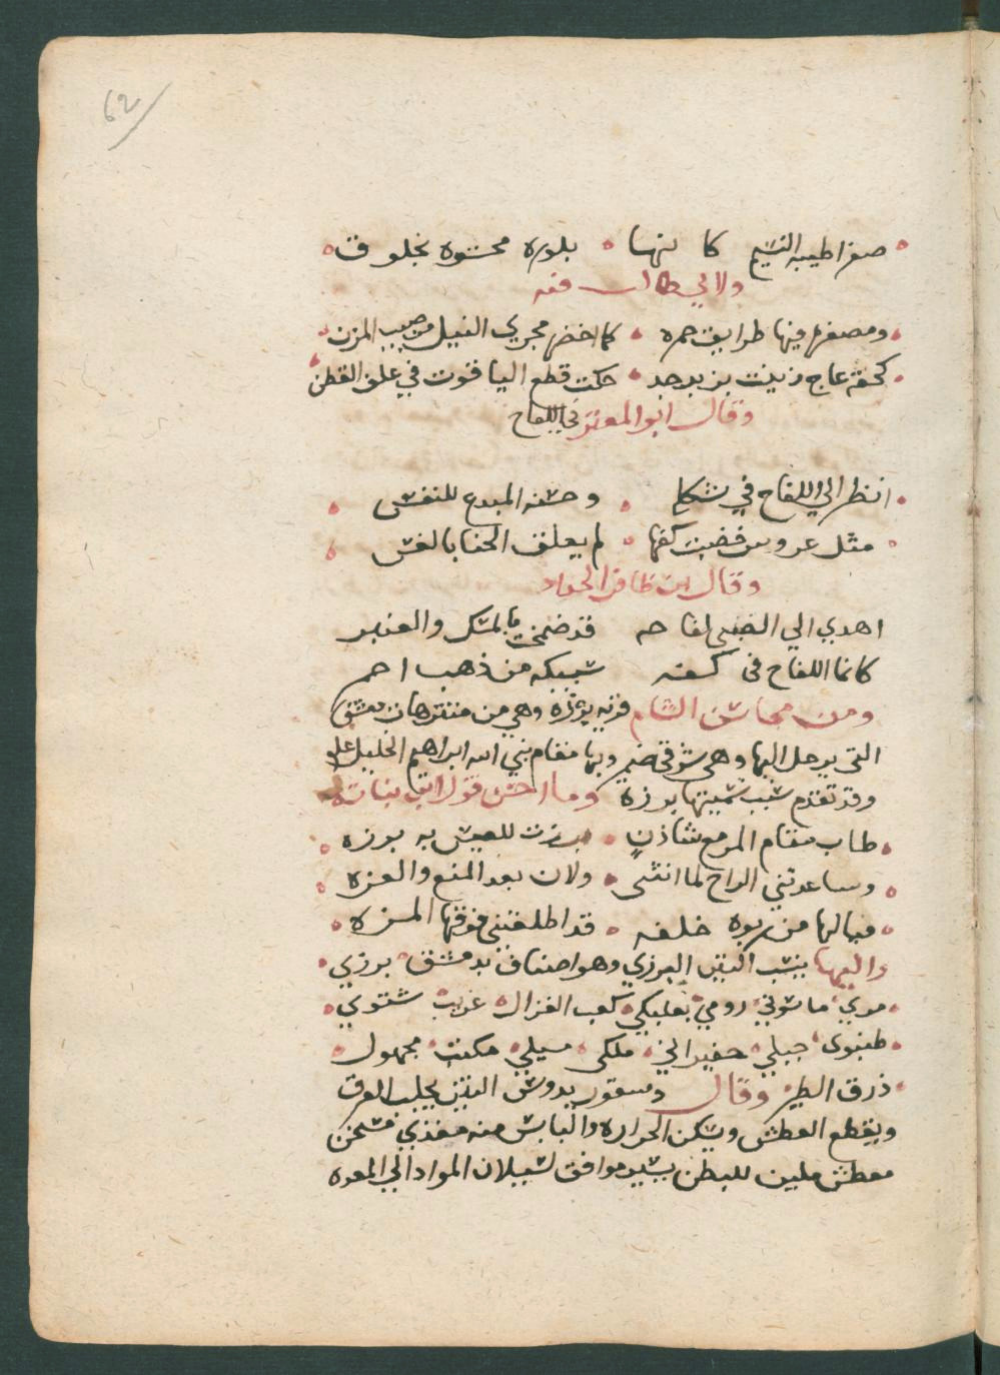 62
صفرا طيبه النسيم كانها • بلوره محشوه بخلوق
ولابي طالب فيه
ومصفره فيها طرايق حمره • كما اخضر مجري السيل من صيب المزن
كحقة عاج زينت بزبرجد • حكت قطع الياقوت في علق القطن
وقال ابو المعتز في اللفاح
انظر الي اللفاح في شكله • وحسنه المبدع للنفس
مثل عروس خضبت كفها • لم يعلق الحنا بالغس
وقال ابن ظافر الحداد
اهدي الي الضبي لفاحه قد ضمخت بالمسك والعنبر
كانما اللفاح في كفه سبيكه من ذهب احمر
ومن محاسن الشام قريه برزه وهي من منتزهات دمشق
التي يرحل اليها وهي شرقي وبها مقام نبي الله ابراهيم الخليل عليه
وقد تقدم سبب تسميتها برزه وما احسن قول ابن نباته
طاب مقام المرء مع شادن • برزت للعيش به برزه
وساعدتني الراح لما انثنى • ولان بعد المنع والعزه
فيالها من ربوه خلفه • قد اطلعتني فوقها المزه
واليها ينسب التين البرزي وهو اصناف بدمشق • برزي
• مزي • ماسوني • رومي • بعلبكي • كعب الغزال • غريب • شتوي
• طنبوى • جبلي • حفيراني • ملكي • سيلي • مكتب • مجهول
• ذرق الطير • وقال ديسقوريدوس التين يجلب العرق
ويقطع العطش ويسكن الحراره واليابس منه مغذي مسخن
معطش ملين للبطن يسير موافق لسيلان المواد الي المعده